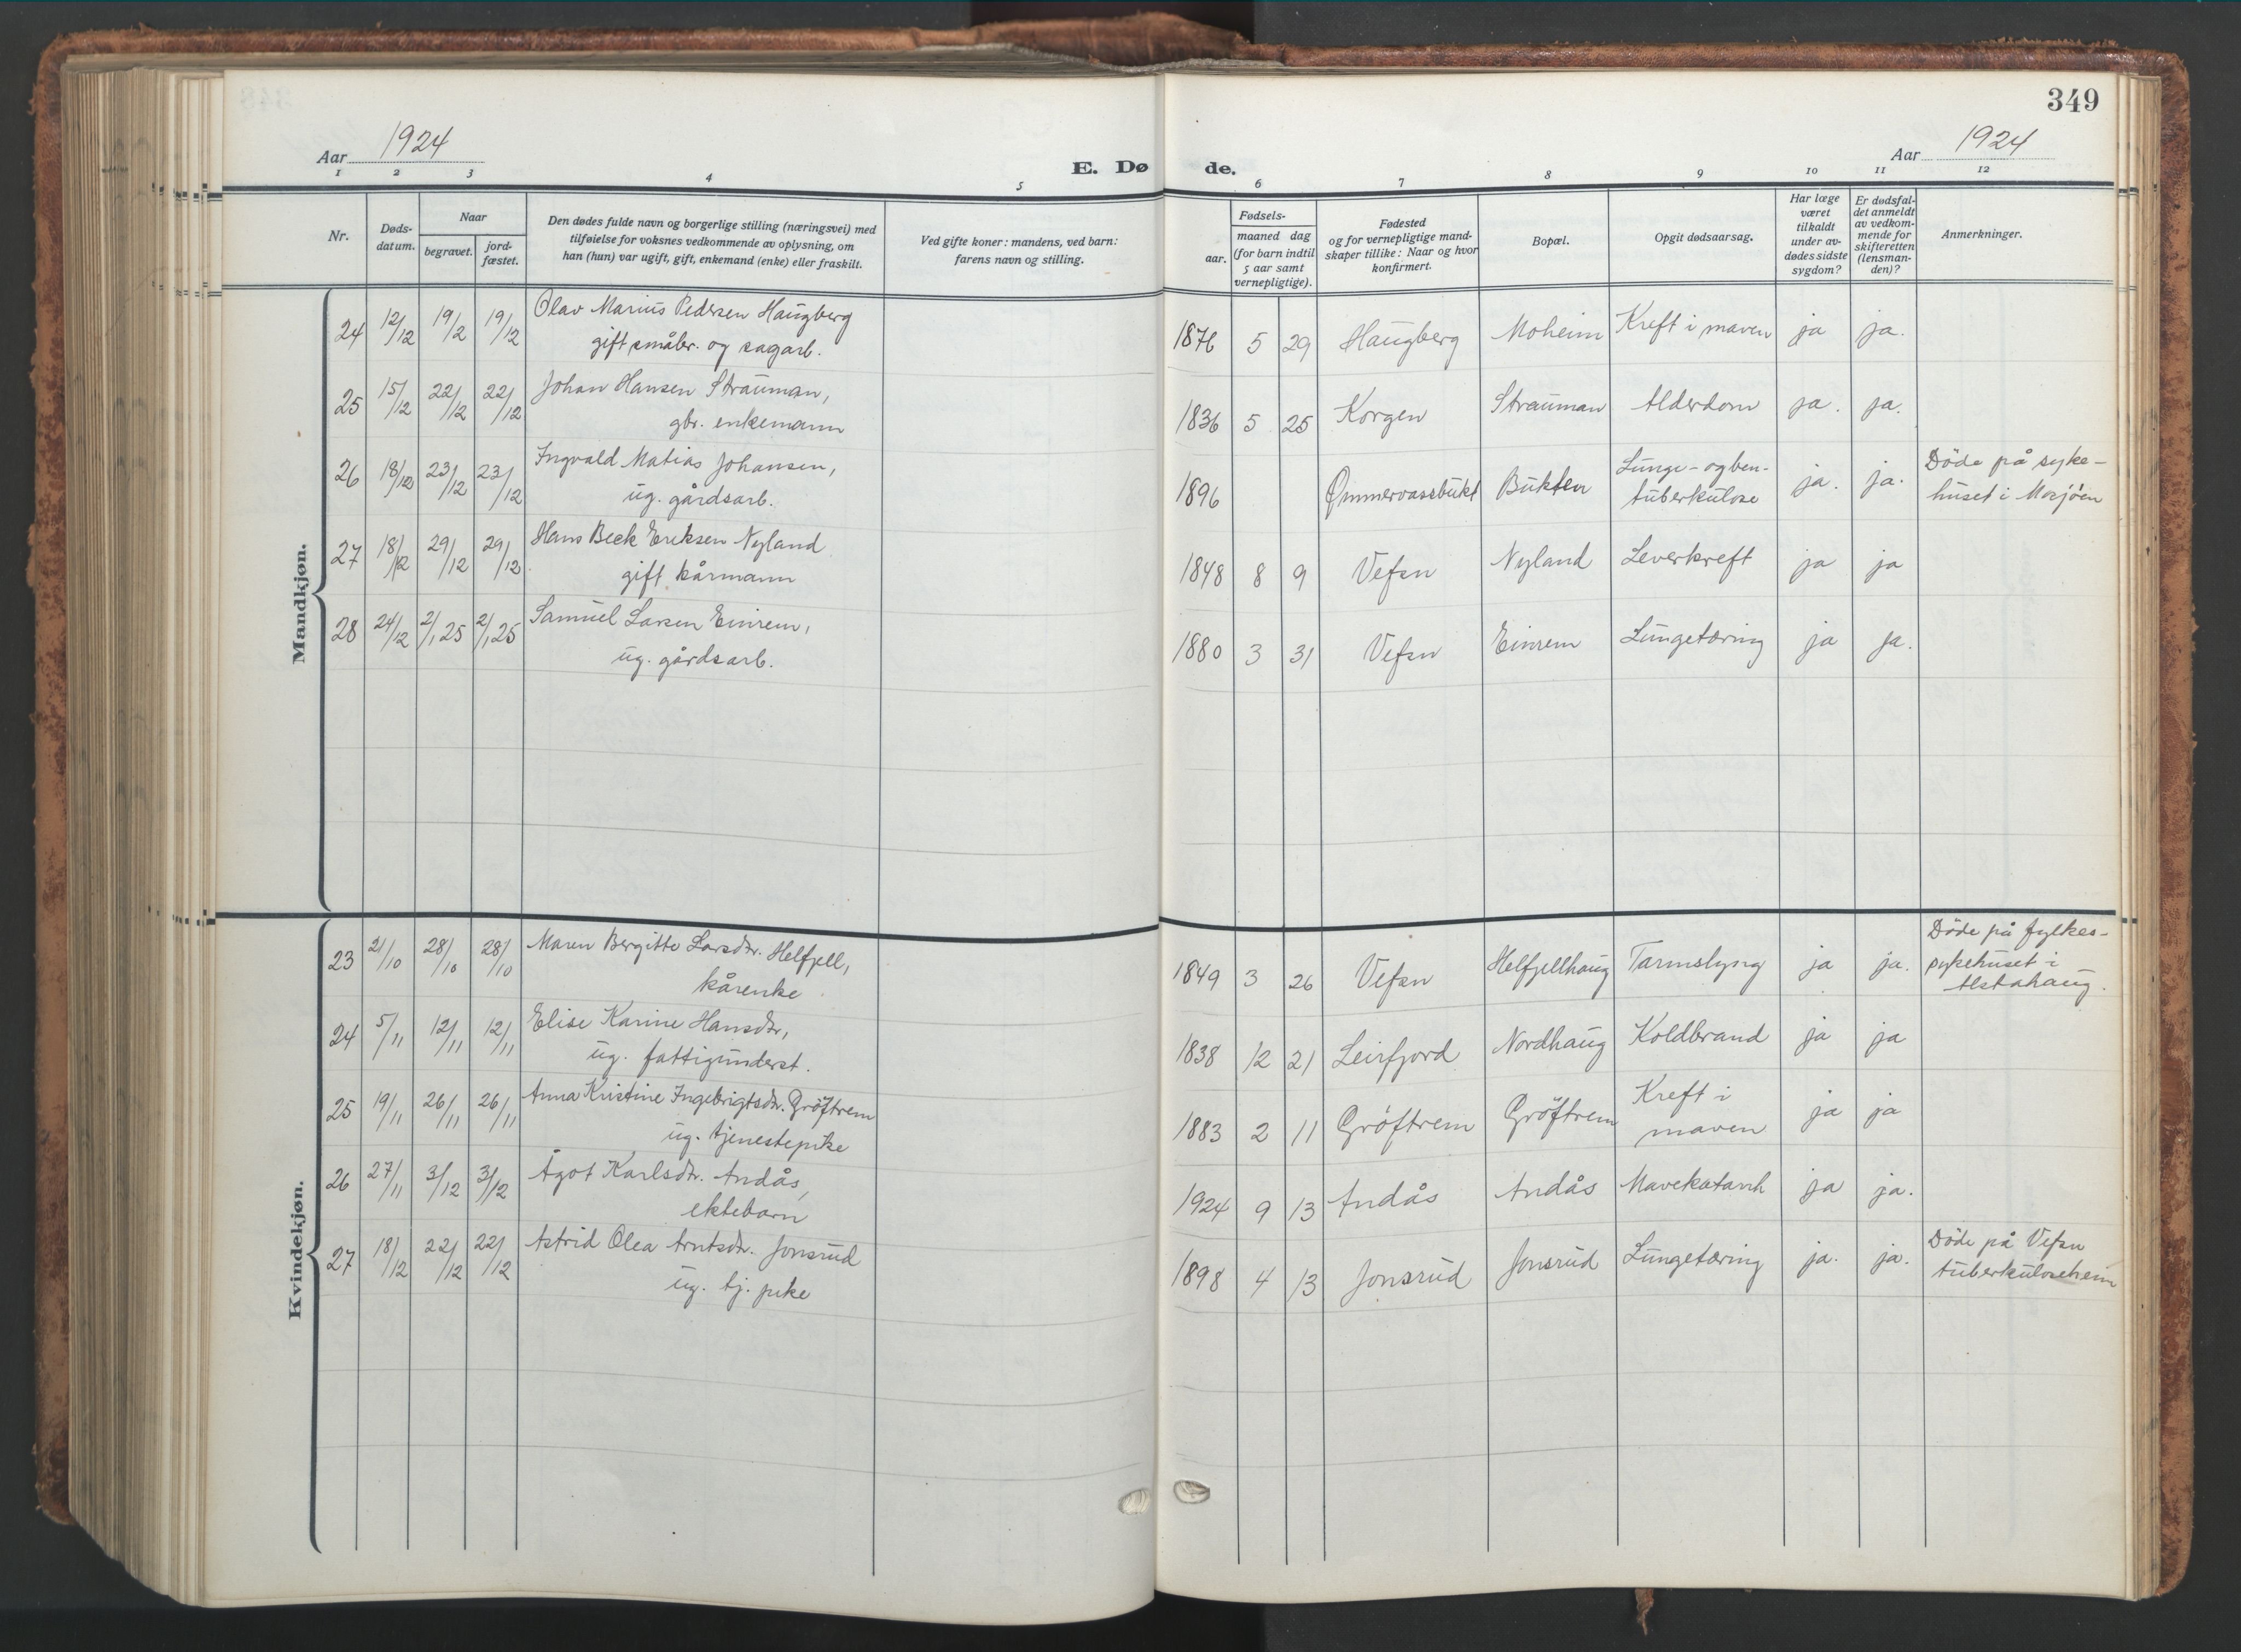 349
Aar 1924
E. Dø de.
Aar 1924
1 2 3 4 5 6 7 8 9 10 11 12
Nr.
Døds-
datum.
Naar
begravet.
jord-
fæstet.
Den dødes fulde navn og borgerlige stilling (næringsvei) med
tilføielse for voksnes vedkommende av oplysning, om
han (hun) var ugift, gift, enkemand (enke) eller fraskilt.
Ved gifte koner: mandens, ved barn:
farens navn og stilling.
Fødsels-
aar.
maaned dag
(for barn indtil
5 aar samt
vernepligtige).
Fødested
og for vernepligtige mand-
skaper tillike: Naar og hvor
konfirmert.
Bopæl.
Opgit dødsaarsag.
Har læge
været
tilkaldt
under av-
dødes sidste
sygdom?
Er dødsfal-
det anmeldt
av vedkom-
mende for
skifteretten
(lensman-
den)?
Anmerkninger.
Mandkjøn.
24 12/12 19/2 19/12 Olav Marius Pedersen Haugberg
gift småbr. og sagarb.
1876 5 29 Haugberg Moheim Kreft i maven ja ja.
25 15/12 22/12 22/12 Johan Hansen Strauman,
gbr. enkemann
1836 5 25 Korgen Strauman Alderdom ja. ja.
26 18/12 23/12 23/12 Ingvald Matias Johansen,
ug. gårdsarb.
1896 Ømmervassbukt Bukten Lunge- og ben-
tuberkulose ja. ja. Döde på syke-
huset i Mosjöen
27 18/12 29/12 29/12 Hans Beck Eriksen Nyland
gift kårmann
1848 8 9 Vefsn Nyland Leverkreft ja ja
28 24/12 2/1 25 2/1 25 Samuel Larsen Einrem,
ug. gårdsarb.
1880 3 31 Vefsn Einrem Lungetæring ja ja.
Kvindekjøn.
23 21/10 28/10 28/10 Maren Bergitte Larsdtr. Helfjell,
kårenke
1849 3 26 Vefsn Helfjellhaug Tarmslyng ja ja. Döde på fylkes-
sykehuset i
Alstahaug.
24 5/11 12/11 12/11 Elise Karine Hansdtr,
ug. fattigunderst.
1838 12 21 Leirfjord Nordhaug Koldbrand ja ja
25 19/11 26/11 26/11 Anna Kristine Ingebrigtsdtr. Gröftrem
ug. tjenestepike
1883 2 11 Gröftrem Gröftrem Kreft i
maven ja ja
26 27/11 3/12 3/12 Ågot Karlsdtr. Andås,
ektebarn
1924 9 13 Andås Andås Mavekatarrh ja ja.
27 18/12 22/12 22/12 Astrid Olea Arntsdtr. Jonsrud
ug. tj. pike
1898 4 13 Jonsrud Jonsrud Lungetæring ja. ja. Döde på Vefsn
tuberkuloseheim